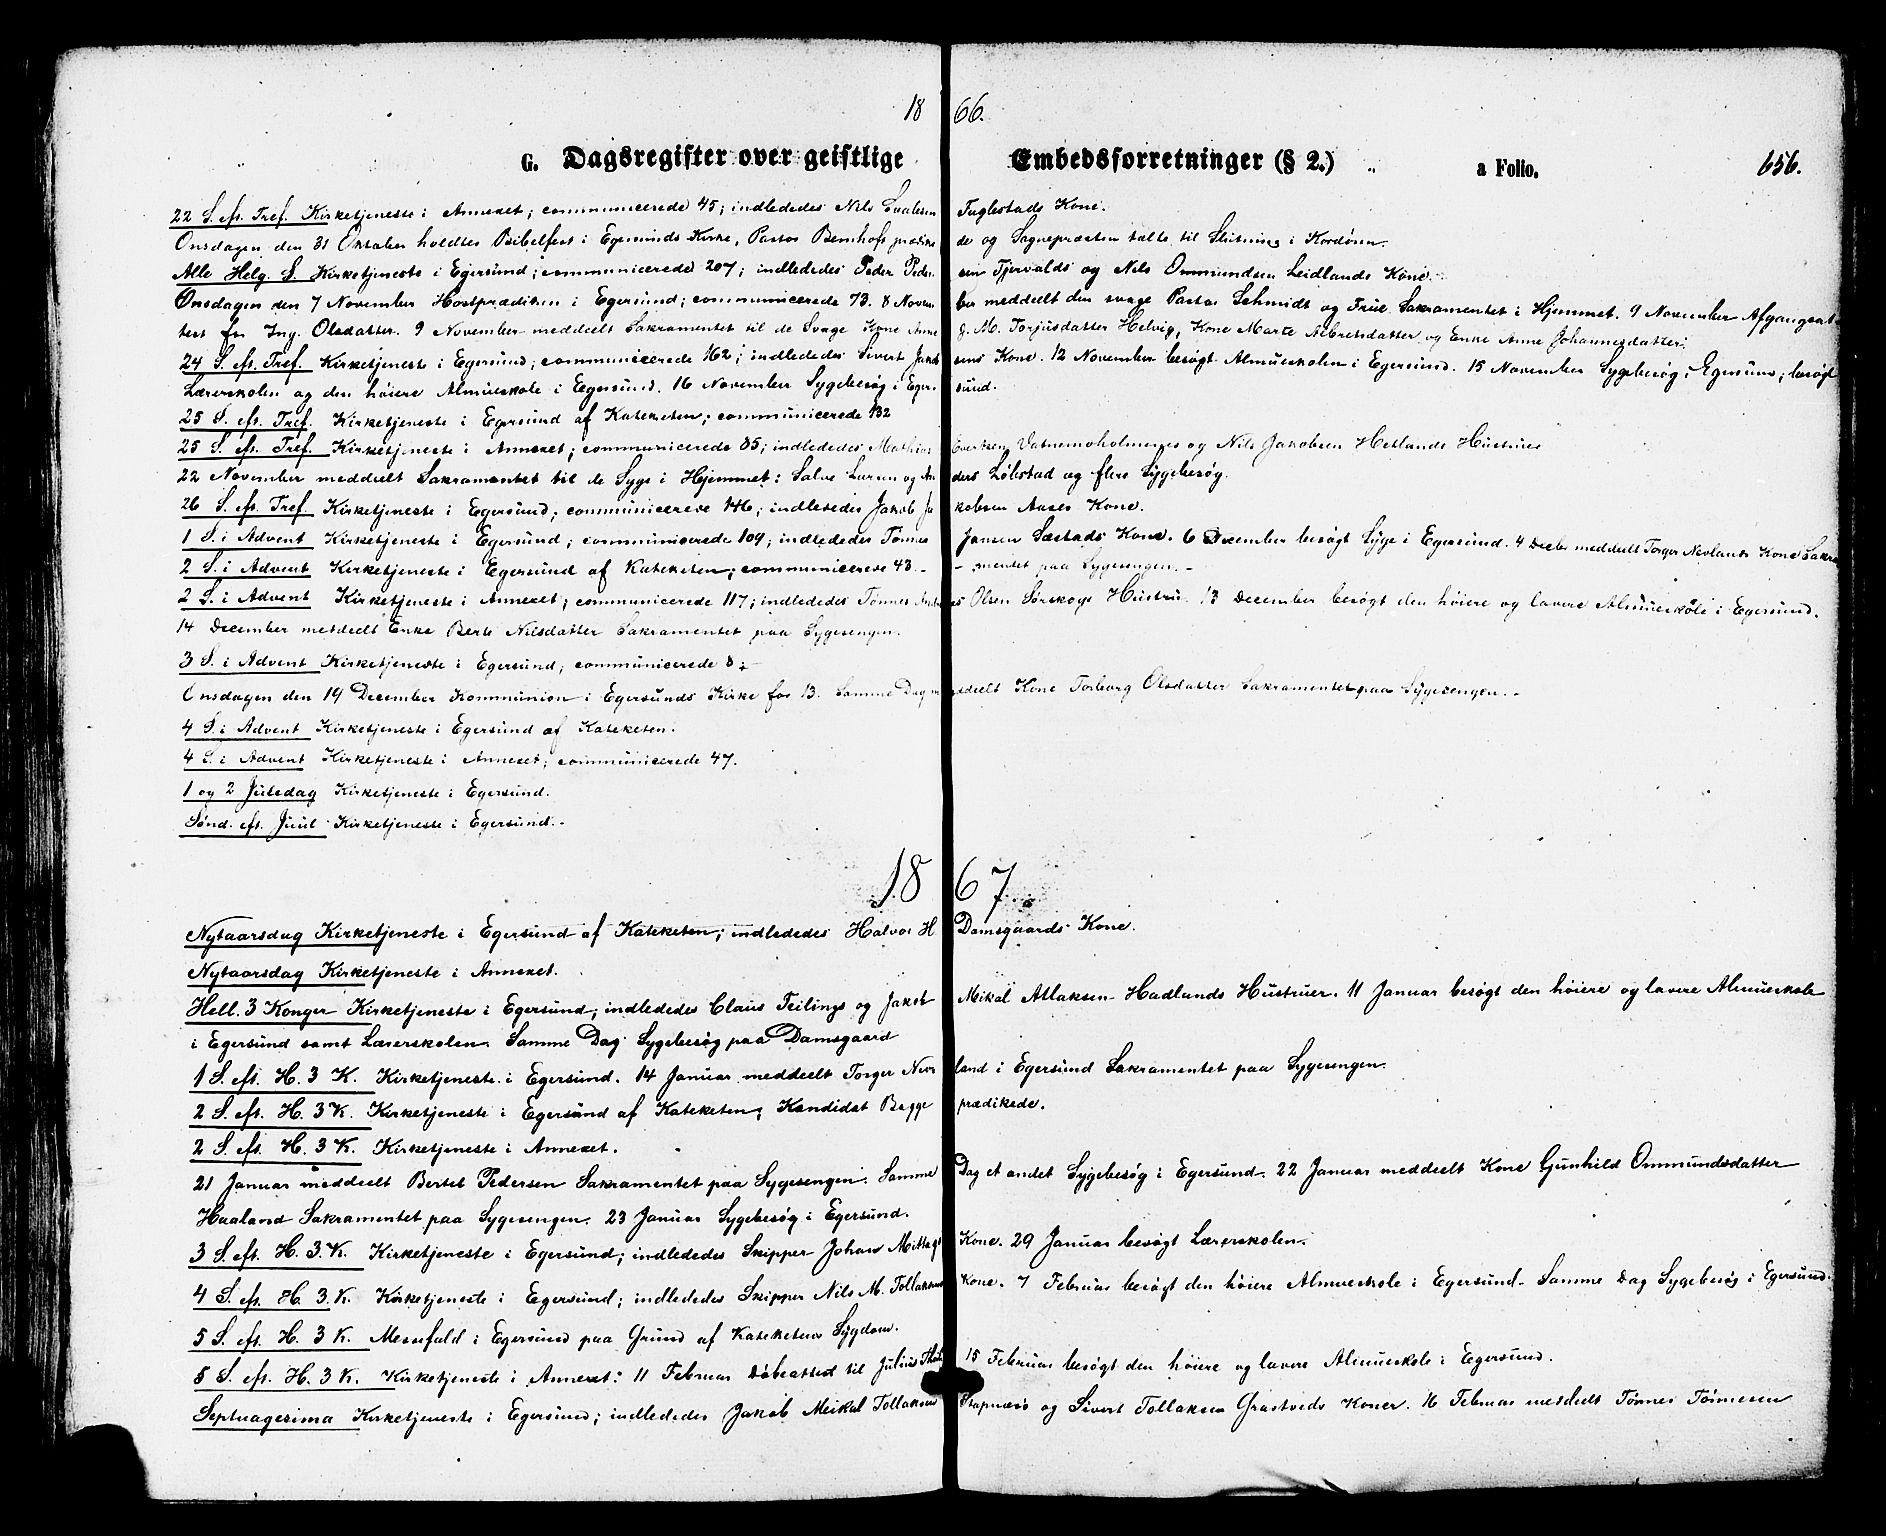 1866.
G. Dagsregister over geistlige Embedsforretninger (§ 2.) a Folio. 656.
22 S. eft. Tref. Kirketjeneste i Annexet; communicerede 45; indlededes Nils Fuglestads Kone.
Onsdagen den 31 Oktober holdtes Bibelfest i Egersunds Kirke, Pastor Bernhoft prædikede og Sognepræsten talte til Slutning i Kordøren.
Alle Helg. S. Kirketjeneste i Egersund; communicerede 207; indlededes Peder Pedersen Tjervalds og Nils Ommundsen Leidlands Kone.
Onsdagen den 7 November Høstprædiken i Egersund; communicerede 73. 8 November meddeelt den svage Pastor Schmidt og Frue Sakramentet i Hjemmet. 9 November Afgangsat-
test for Ing. Olsdatter. 9 November meddeelt Sakramentet til de Svage Kone Anne G. M. Torjusdatter Helvig, Kone Marte Albretsdatter og Enke Anne Johannesdatter.
24 S. eft. Tref. Kirketjeneste i Egersund; communicerede 162; indlededes Sivert Jakobsens Kone. 12 November besøgt Almueskolen i Egersund. 15 November Sygebesøg i Egersund, besøgt
Lærerskolen og den høiere Almueskole i Egersund. 16 November Sygebesøg i Egersund.
25 S. eft. Tref. Kirketjeneste i Egersund af Kateketen; communicerede 132
25 S. eft. Tref. Kirketjeneste i Annexet; communicerede 85; indlededes Mathias Vatnemoholmenes og Nils Jakobsen Hetlands Hustruer
22 November meddeelt Sakramentet til de Syge i Hjemmet: Salve Larsen og Anders Løbstad og flere Sygebesøg.
26 S. eft. Tref. Kirketjeneste i Egersund; communicerede 146; indlededes Jakob Jakobsen Aases Kone.
1 S. i Advent Kirketjeneste i Egersund; communicerede 109; indlededes Tønnes Jansen Sæstads Kone. 6 December besøgt Syge i Egersund. 4 Decbr meddeelt Torger Nevlands Kone Sakra-
2 S. i Advent Kirketjeneste i Egersund af Kateketen; communicerede 43. - - mentet paa Sygesengen. -
2 S. i Advent Kirketjeneste i Annexet; communicerede 117; indlededes Tønnes Olsen Sørskogs Hustru. 13 December besøgt den høiere og lavere Almueskole i Egersund.
14 December meddeelt Enke Berte Nilsdatter Sakramentet paa Sygesengen.
3 S. i Advent Kirketjeneste i Egersund; communicerede 8.-
Onsdagen den 19 December Kommunion i Egersunds Kirke for 13. Samme Dag meddeelt Kone Torborg Olsdatter Sakramentet paa Sygesengen. -
4 S. i Advent Kirketjeneste i Egersund af Kateketen.
4 S. i Advent Kirketjeneste i Annexet; communicerede 47.
1 og 2 Juledag Kirketjeneste i Egersund.
Sønd. eft. Juul Kirketjeneste i Egersund.-
1867.
Nytaarsdag Kirketjeneste i Egersund af Kateketen; indlededes Halvor H Damsgaards Kone.
Nytaarsdag Kirketjeneste i Annexet.
Hell. 3 Konger Kirketjeneste i Egersund, indlededes Claus Feilings og Jakob Mikal Atlaksen Hadlands Hustruer. 11 Januar besøgt den høiere og lavere Almueskole
i Egersund samt Lærerskolen. Samme Dag Sygebesøg paa Damsgaard
1 S. eft. H. 3 K. Kirketjeneste i Egersund. 14 Januar meddeelt Torger Nevland i Egersund Sakramentet paa Sygesengen.
2 S. eft. H. 3 K. Kirketjeneste i Egersund af Kateketen; Kandidat Bagge prædikede.
2 S. eft. H. 3 K. Kirketjeneste i Annexet.
21 Januar meddeelt Bertel Pedersen Sakramentet paa Sygesengen. Samme Dag et andet Sygebesøg i Egersund. 22 Januar meddeelt Kone Gunhild Ommundsdatter
Haaland Sakramentet paa Sygesengen. 23 Januar Sygebesøg i Egersund.
3 S. eft. H. 3. K. Kirketjeneste i Egersund; indlededes Skipper Johan Mittags Kone. 29 Januar besøgt Lærerskolen.
4 S. eft. H. 3. K. Kirketjeneste i Egersund; indlededes Skipper Nils M. Tollaksens Kone. 7 Februar besøgt den høiere Almueskole i Egersund. Samme Dag Sygebesøg i Egersund.
5 S. eft. H. 3 K. Messefald i Egersund paa Grund af Kateketens Sygdom.
5 S. eft. H. 3 K. Kirketjeneste i Annexet. 11 Februar Døbeattest til Julius 15 Februar besøgt den høiere og lavere Almueskole i Egersund.
Septuagesima Kirketjeneste i Egersund; indlededes Jakob Meikal Tollaksen Stapnæs og Sivert Tollaksen Grastveds Koner. 16 Februar meddeelt Tønnes Tønnesen